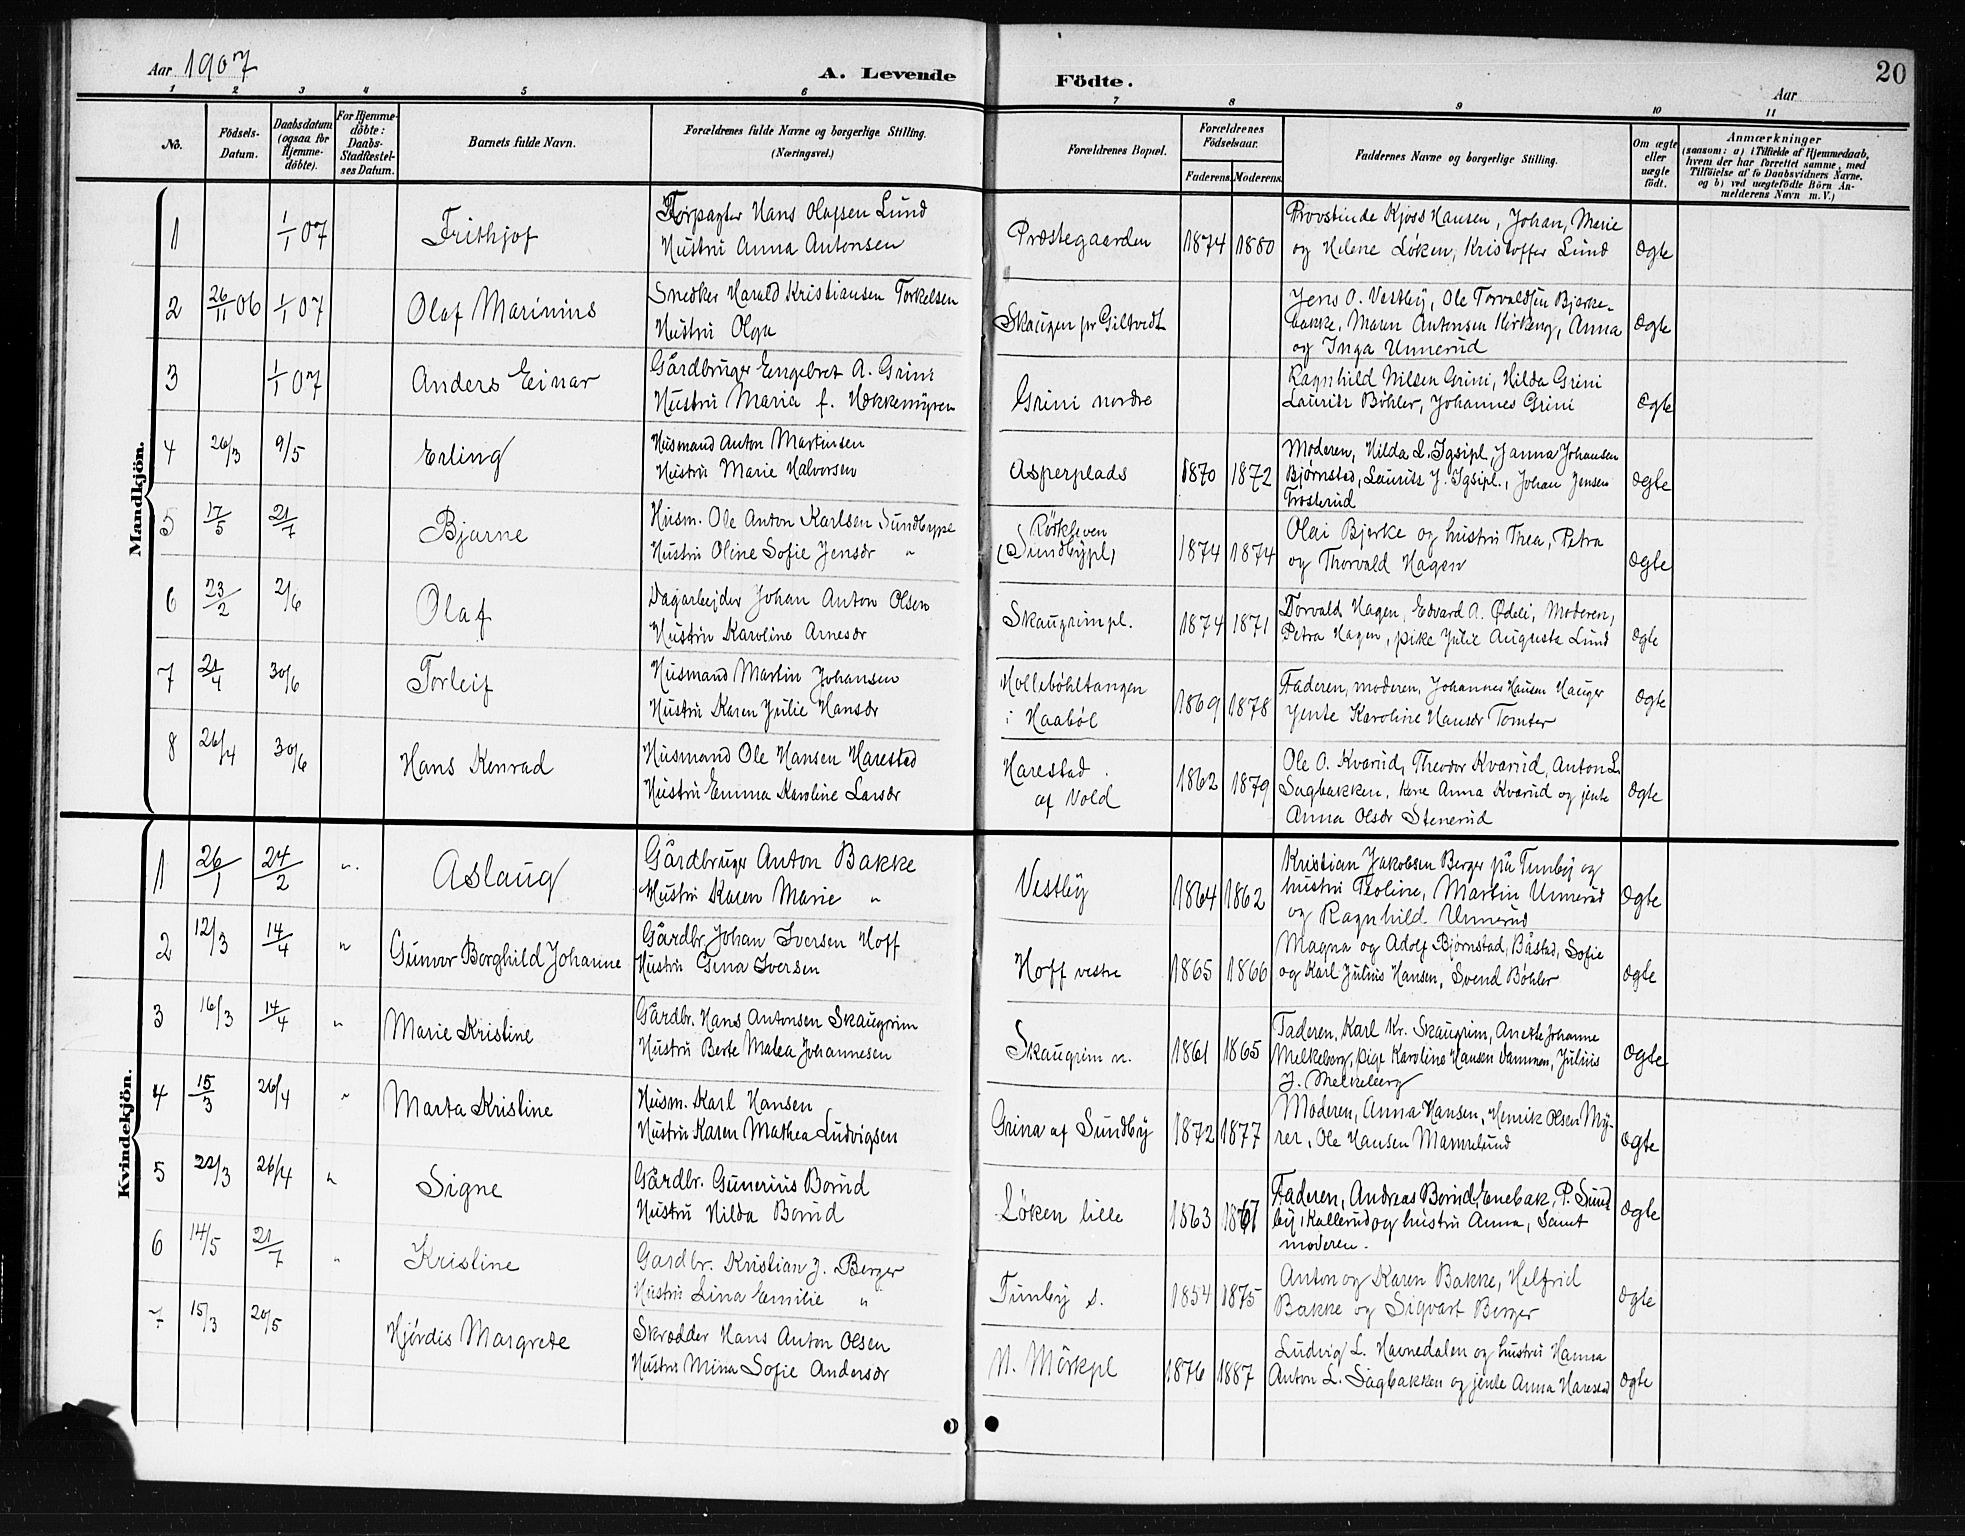 Aar 1907
A. Levende Födte.
Aar
20
1 2 3 4 5 6 7 8 9 10 11
No.
Födsels-
Datum.
Daabsdatum
(ogsaa for
Hjemme-
döbte).
For Hjemme-
döbte:
Daabs-
Stadfæstel-
ses Datum.
Barnets fulde Navn.
Forældrenes fulde Navne og borgerlige Stilling.
(Næringsvei.)
Forældrenes Bopæl.
Forældrenes
Födselsaar.
Faderens. Moderens.
Faddernes Navne og borgerlige Stilling.
Om ægte
eller
uægte
födt.
Anmærkninger
(saasom: a) i Tilfælde af Hjemmedaab,
hvem der har forrettet samme, med
Tilföielse af to Daabsvidners Navne.
og b) ved uægtefödte Börn An-
melderens Navn m. V.)
Mandkjön.
1 1/1 07 Frithjof
Forpagter Hans Olafsen Lund
Hustru Anna Antonsen
Præstegaarden 1874 1880
Provstinde Kjoss Hansen, Johan, Marie
og Helene Løken, Kristoffer Lund
ægte
2 26/11 06 1/1 07 Olaf Marinius
Snedker Harald Kristiansen Torkelsen
Hustru Olga
Skaugen pr Giltvedt
Jens O. Vestby, Ole Torvaldsen Bjerke-
bakke, Maren Antonsen Kirkeng, Anna
og Inga Unnerud
ægte
3 1/1 07 Anders Einar
Gårdbruger Engebret A. Grini
Hustru Maria f. Hækkemyren
Grini nordre
Ragnhild Nilsen Grini, Hilda Grini
Lauritz Böhler, Johannes Grini
ægte
4 26/3 9/5 Erling
Husmand Anton Martinsen
Hustru Marie Halvorsen
Asperplads 1870 1872
Moderen, Hilda L. Igsipl, Janna Johansen
Bjørnstad, Lauritz J. Igsipl., Johan Jensen
Trosterud
ægte
5 17/5 21/7 Bjarne
Husm. Ole Anton Karlsen Sundbyype
Hustru Oline Sofie Jensdr "
Rörkleven
(Sundbypl) 1874 1874
Olai Bjerke og hustru Thea, Petra
og Thorvald Hagen
ægte
6 23/2 2/6 Olaf
Dagarbejder Johan Anton Olsen
Hustru Karoline Arnesdr
Skaugrimpl. 1874 1871
Torvald Hagen, Edvard A. Ødeli, Moderen,
Petra Hagen, pike Julie Augusta Lund
ægte
7 21/4 30/6 Torleif
Husmand Martin Johansen
Hustru Karen Julie Hansdr
Hollebøhltangen
i Haabøl 1869 1878
Faderen, moderen, Johannes Hansen Hauger
jente Karoline Hansdr Tomter
ægte
8 26/4 30/6 Hans Konrad
Husmand Ole Hansen Harestad
Hustru Emma Karoline Larsdr
Harestad
af Vold 1862 1879
Ole O. Kvarud, Theodor Kvarud, Anton L.
Sagbakken, kone Anna Kvarud og jente
Anna Olsdr Stenerud
ægte
Kvindekjön.
1 26/1 24/2 " Aslaug
Gårdbruger Anton Bakke
Hustru Karen Marie "
Vestby 1864 1862
Kristian Jakobsen Berger på Tunby og
hustru Teoline, Martin Unnerud
og Ragnhild Unnerud
ægte
2 12/3 14/4 " Gunvor Borghild Johanne
Gårdbr Johan Iversen Hoff
Hustru Gina Iversen
Hoff vestre 1865 1866
Magna og Adolf Bjørnstad, Båstad, Sofie
og Karl Julius Hansen, Svend Bøhler
ægte
3 16/3 14/4 " Marie Kristine
Gårdbr. Hans Antonsen Skaugrim
Hustru Berte Matea Johannesen
Skaugrim n. 1861 1865
Faderen, Karl Kr. Skaugrim, Anette Johanne
Melkeberg, pige Karoline Hansen Dammen, Julius
J. Melkeberg
ægte
4 15/3 26/4 " Marta Kristine
Husm. Karl Hansen
Hustru Karen Mathea Ludvigsen
Grina af Sundby 1872 1877
Moderen, Anna Hansen, Henrik Olsen My-
rer, Ole Hansen Mamrelund
ægte
5 22/3 26/4 " Signe
Gårdbr. Gunerius Borud
Hustru Hilda Borud
Løken lille 1863 1867
Faderen, Andreas Borud, Enebak, P. Sund
by, Kallerud og hustru Anna, samt
moderen.
ægte
6 14/5 21/7 " Kristine
Gardbr. Kristian J. Berger
Hustru Lina Emilie "
Tunby s. 1854 1875
Anton og Karen Bakke, Helfrid
Bakke og Sigvart Berger
ægte
7 15/3 20/5 Hjördis Margrete
Skrædder Hans Anton Olsen
Hustru Mina Sofie Andersdr
N. Mörkpl 1876 1887
Ludvig L. Havnedalen og hustru Hanna
Anton L. Sagbakken og jente Anna Harestad
ægte